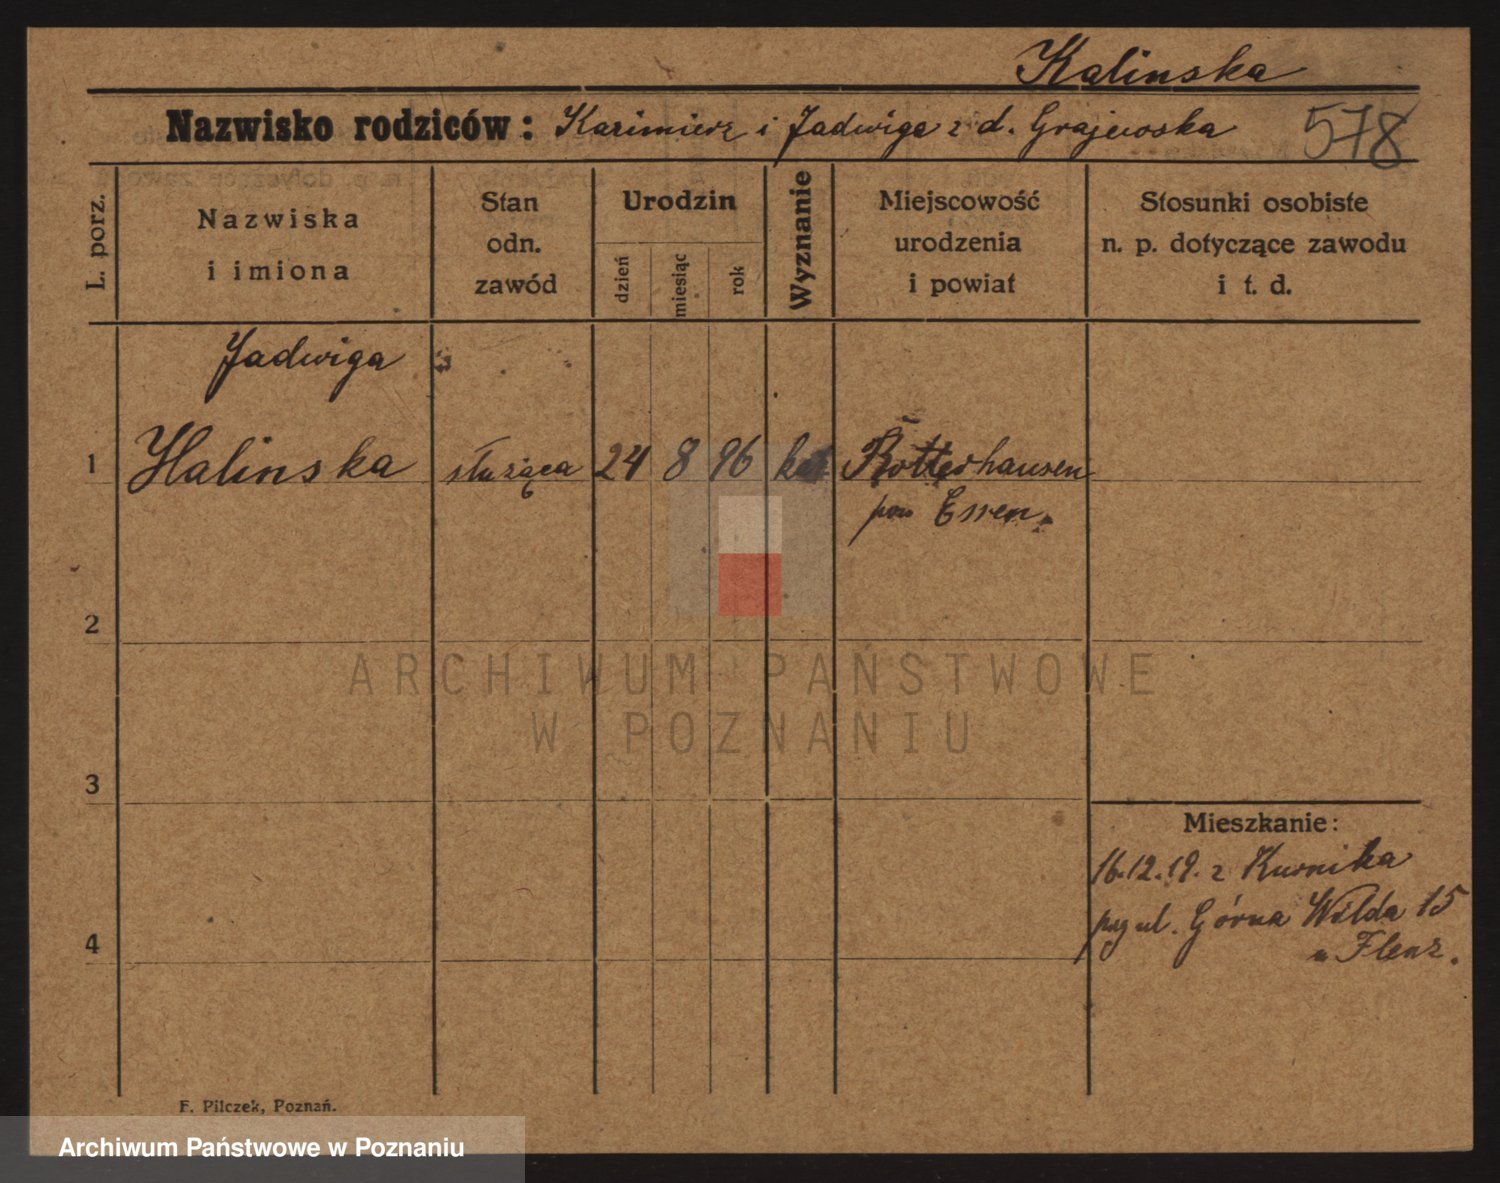 Kalinska
Nazwisko rodziców: Kazimierz i Jadwiga z d. Grajewska 578
L. porz.
Nazwiska
i imiona
Stan
odn.
zawód
Urodzin
dzień
miesiąc
rok
Wyznanie
Miejscowość
urodzenia
i powiat
Stosunki osobiste
n. p. dotyczące zawodu
i t. d.
Jadwiga
1 Kalinska służąca 24 8 96 kat Rotterhausen
pow Essen.
2
ARCHIWUM PAŃSTWOWE
W POZNANIU
3
Mieszkanie:
16.12.19. z Kurnika
ul. Górna Wilda 15
u Flenz.
4
F. Pilczek, Poznań.
Archiwum Państwowe w Poznaniu